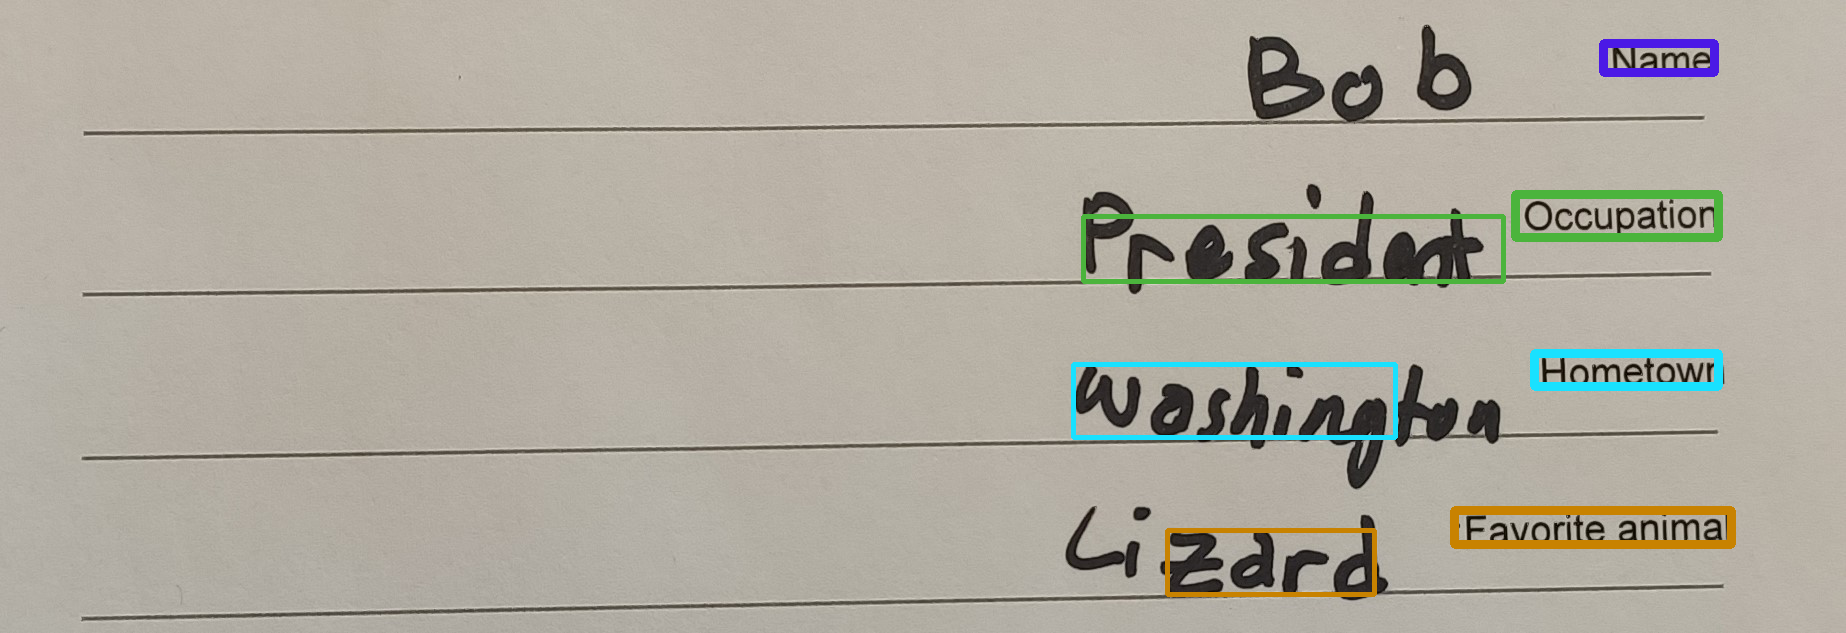 Bob Name
President Occupation
Washington Hometown
Lizard Favorite animal